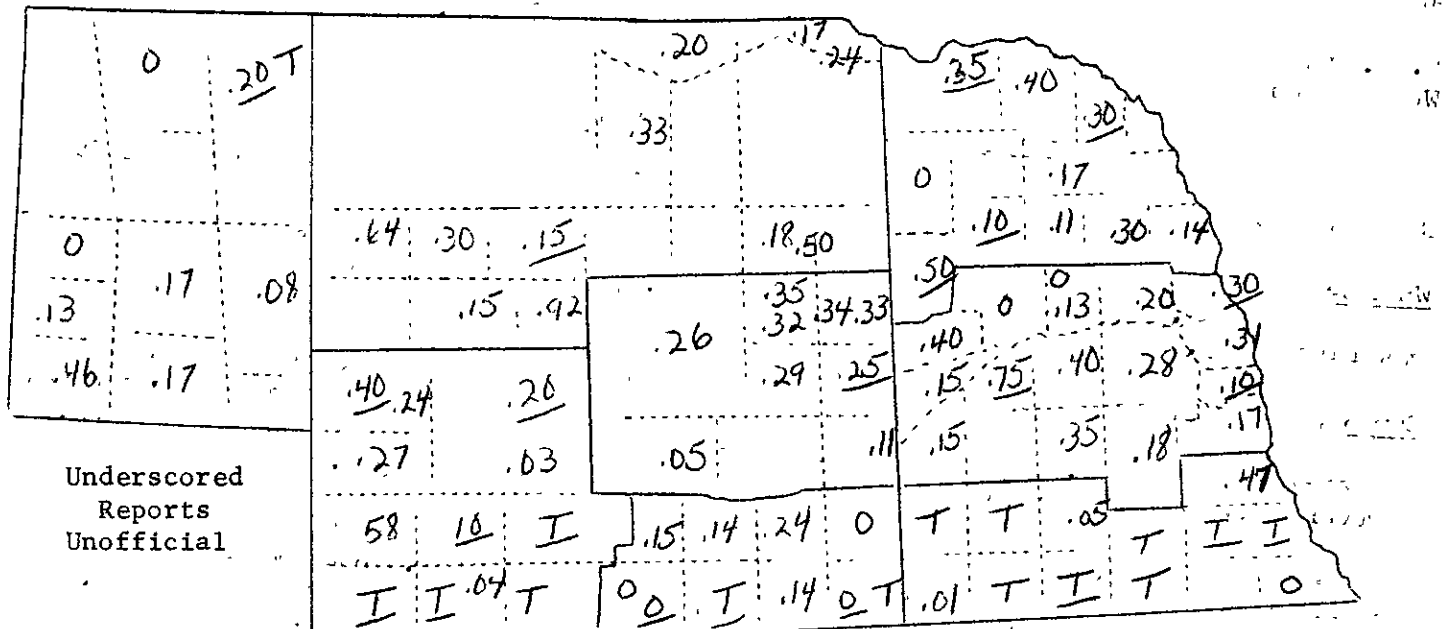 0 .20 T .20 .17 .24 .35 .40
.33 .30
0 .17
0 .64 .30 .15 .18 .50 .10 .11 .30 .14
.13 .17 .08 .15 .92 .26 .35 .34 .33 .50 0 0 .13 .20 .30
.32 .40 .31
.46 .17 .40 .24 .20 .29 .25 .15 .75 .40 .28 .10
.17
.27 .03 .05 .11 .15 .35 .18
Underscored
Reports
Unofficial
.47
58 10 T .15 .14 .24 0 T T .05 T T T
T T .04 T 0 0 T .14 0 T .01 T T T 0